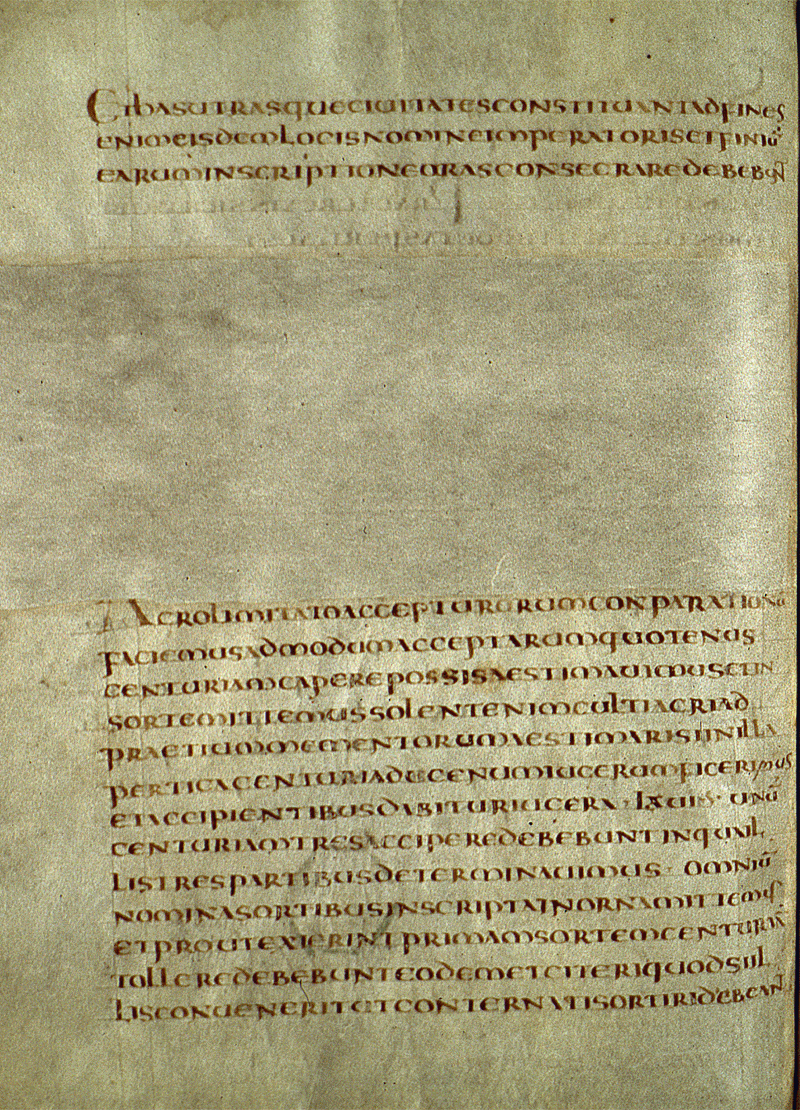 CIBASUTRASQUECIUITATESCONSTITUANTADFINES
ENIMEISDEMLOCISNOMINEIMPERATORISETFINIŪ
EARUMINSCRIPTIONEARASCONSECRAREDEBEBUNT
ACROLIMITATOACCEPTURORUMCONPARATIONĒ
FACIEMUSADMODUMACCEPTARUMQUOTENUS
CENTURIAMCAPEREPOSSISAESTIMAUIMUSETIN
SORTEMITTEMUSSOLENTENIMCULTIACRIAD
PRAETIUMMEMENTORUMAESTIMARISIINILLA
PERTICACENTURIADUCENUMIUCERUMFICERIMUS
ETACCIPIENTIBUSDABITURIUCERA·LXUIS·UNĀ
CENTURIAMTRESACCIPEREDEBEBUNTINQUAIL
LISTRESPARTIBUSDETERMINAUIMUS·OMNIŪ
NOMINASORTIBUSINSCRIPTAINORNAMITTEMUS
ETPROUTEXIERINTPRIMAMSORTEMCENTURIA
TOLLEREDEBEBUNTEODEMETCETERIQUODSIIL
LISCONUENERITETCONTERNATISORTIRIDEBEANT